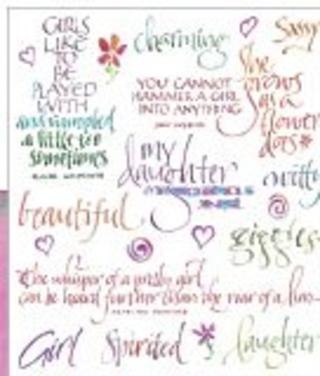 GIRLS
LIKE
TO
BE
PLAYED
WITH
and rumpled
a little too
sometimes
charming
Sassy
YOU CANNOT
HAMMER A GIRL
INTO ANYTHING
She
grows
as a
flower
does
my
daughter
witty
beautiful
giggles
The whisper of a pretty girl
can be heard further than the roar of a lion
Girl
Spirited
laughter